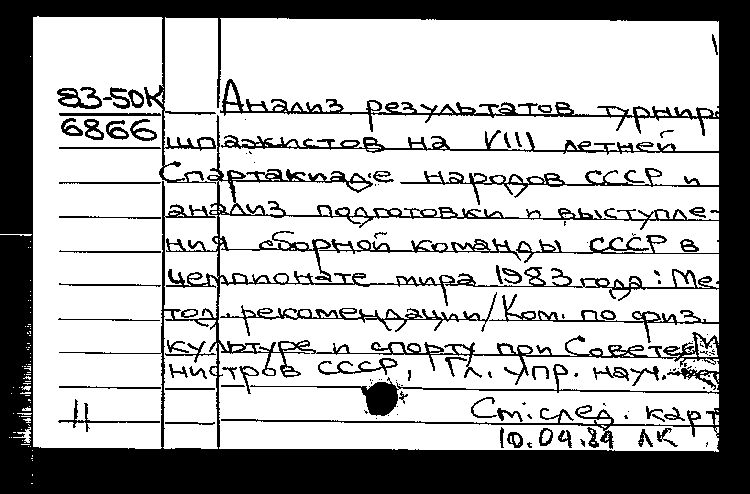 83-50К
6866
Анализ результатов турнира
шпажистов на VIII летней
Спартакиаде народов СССР и
анализ подготовки и выступле-
ния сборной команды СССР в
чемпионате мира 1983 года: Ме-
тод. рекомендации/Ком. по физ.
культуре и спорту при Совете Ми-
нистров СССР, Гл. упр. науч.
См. след. карт
10.04.84 ЛК